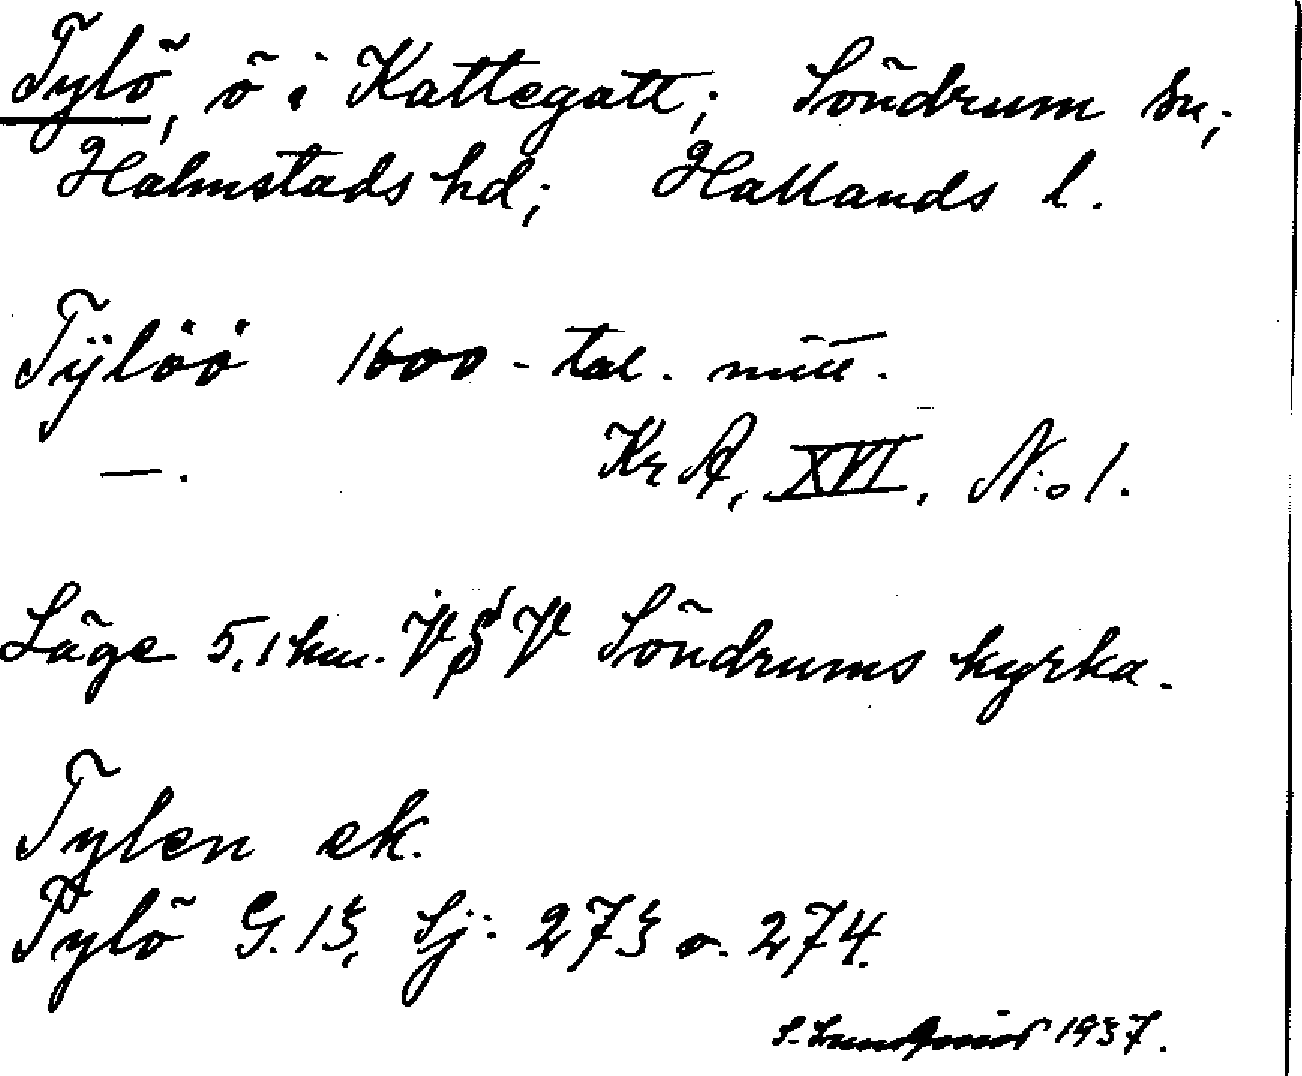 Tylö, ö i Kattegatt; Söndrum sn;
Halmstads hd; Hallands l.
Tÿlöö 1600-tal. mitt.
—. KrA, XVI, N:o 1.
Läge 5,1 km. V V Söndrums kyrka.
Tylen ek.
Tylö G.13, Sj: 273 o. 274.
S. Lundqvist 1937.